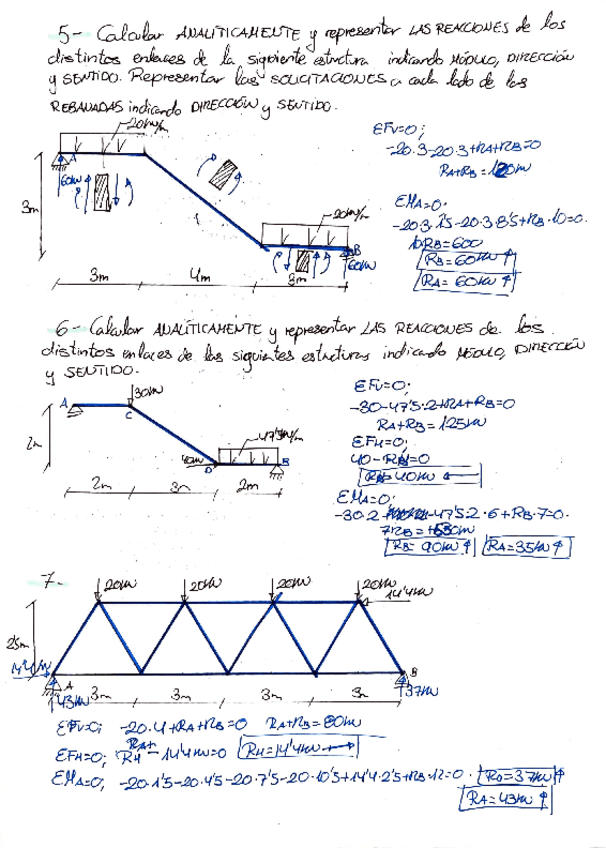 5- Calcular ANALÍTICAMENTE y representar LAS REACCIONES de los
distintos enlaces de la siguiente estructura indicando MÓDULO, DIRECCIÓN
y SENTIDO. Representar las SOLICITACIONES a cada lado de las
REBANADAS indicando DIRECCIÓN y SENTIDO.
20kN/m
A
60kN
3m
20kN/m
B
60kN
3m 4m 3m
ΣFV=0;
-20·3-20·3+RA+RB=0
RA+RB=120kN
ΣMA=0;
-20·3·1'5-20·3·8'5+RB·10=0.
10RB=600
RB=60kN↑
RA=60kN↑
6- Calcular ANALÍTICAMENTE y representar LAS REACCIONES de los
distintos enlaces de las siguientes estructuras indicando MÓDULO, DIRECCIÓN
y SENTIDO.
30kN
A
C
2m
40kN
D
47'5kN/m
B
2m 3m 2m
ΣFV=0;
-30-47'5·2+RA+RB=0
RA+RB=125kN
ΣFH=0;
40-RBH=0
40kN ←
ΣMA=0;
-30·2-47'5·2·6+RB·7=0.
7RB=+630m
RB=90kN↑ RA=35kN↑
7-
20kN 20kN 20kN 20kN
14'4kN
2'5m
14'4kN
A
43kN
B
37kN
3m 3m 3m 3m
ΣFV=0; -20·4+RA+RB=0 RA+RB=80kN
ΣFH=0; RH-14'4kN=0 RH=14'4kN→
ΣMA=0; -20·1'5-20·4'5-20·7'5-20·10'5+14'4·2'5+RB·12=0. RB=37kN↑
RA=43kN↑